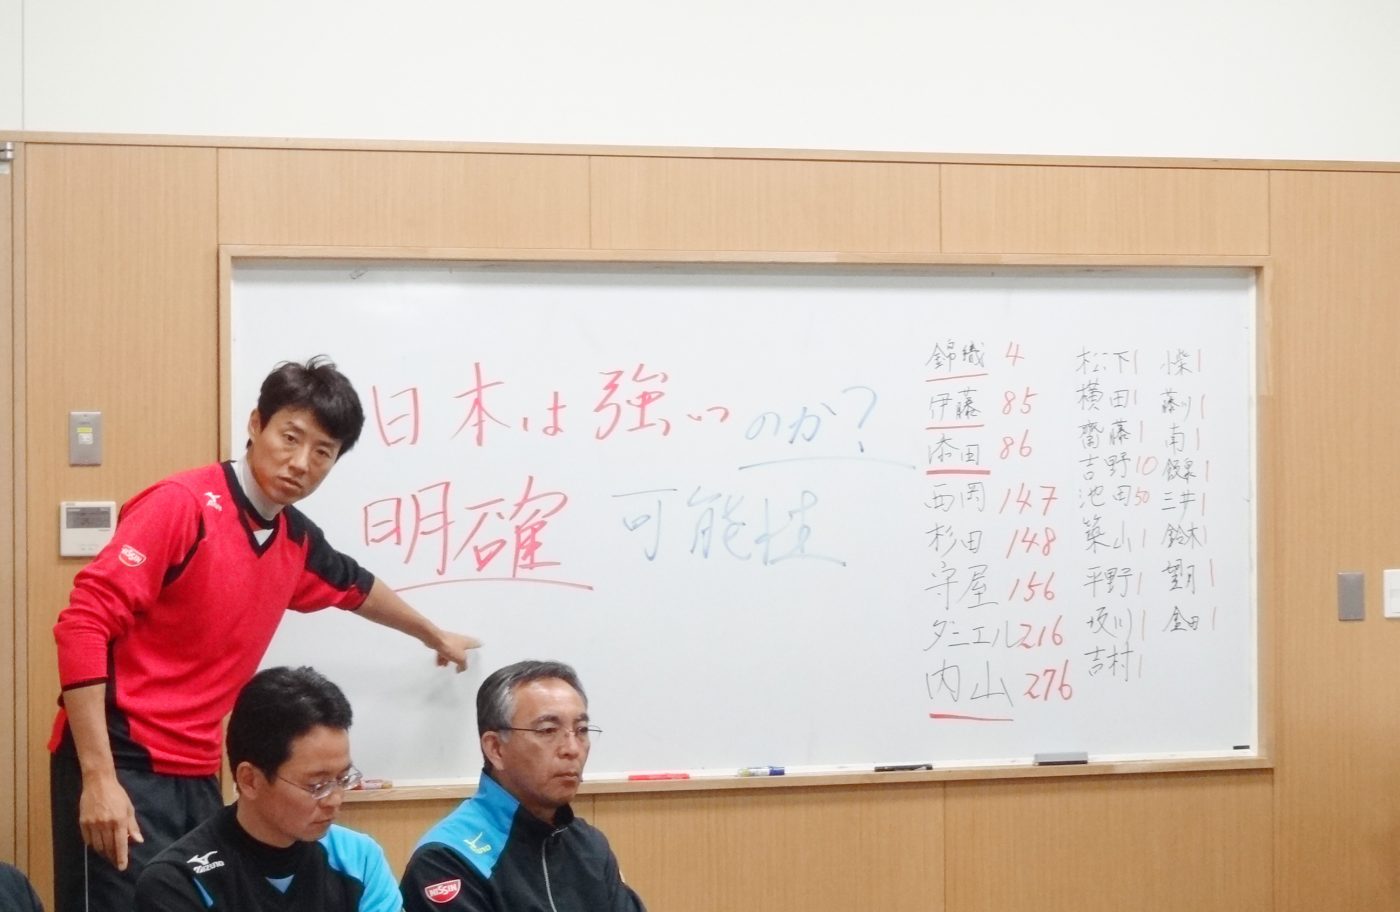 日本は強いのか?
明確 可能性
錦織 4
伊藤 85
添田 86
西岡 147
杉田 148
守屋 156
ダニエル 216
内山 276
松下 1
横田 1
齋藤 1
吉野 10
池田 50
築山 1
平野 1
坂川 1
吉村 1
小柴 1
藤川 1
南 1
飯泉 1
三井 1
鈴木 1
望月 1
金田 1
NISSIN
MIZUNO
NISSIN